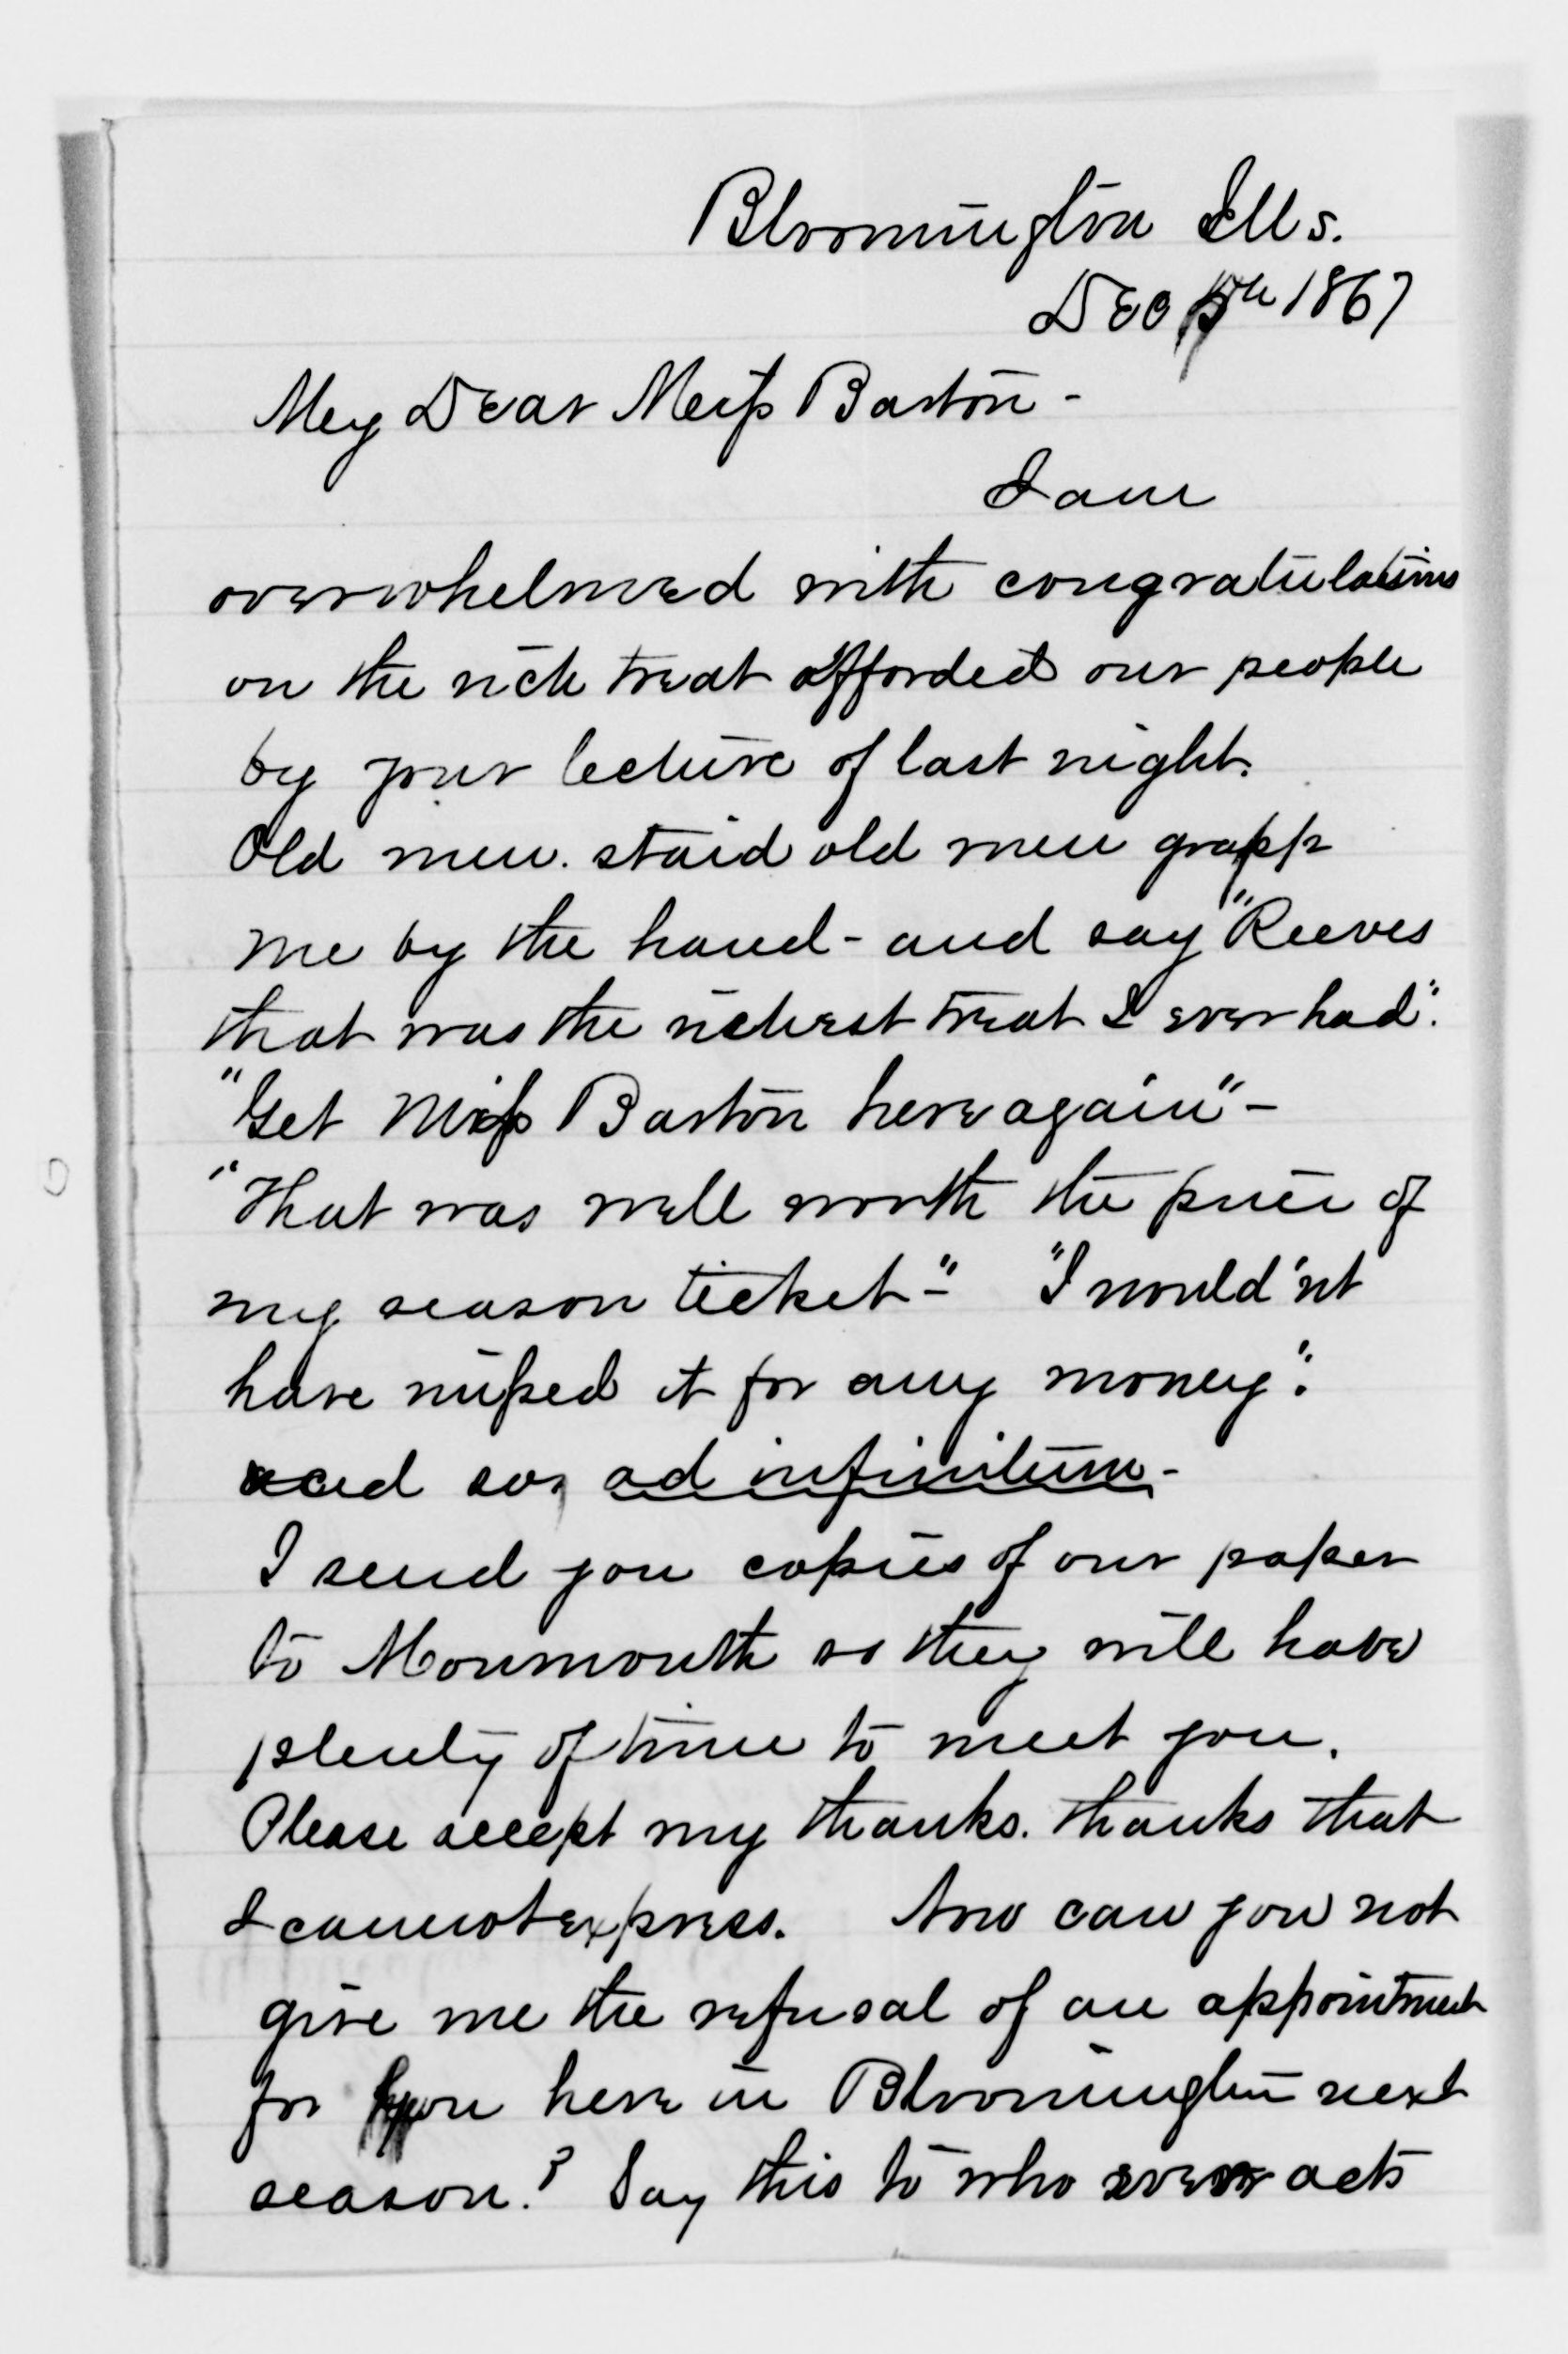 Bloomington Ills.
Dec 5th 1867
My Dear Miss Barton -
I am
overwhelmed with congratulations
on the rich treat afforded our people
by your lecture of last night.
Old men. staid old men grasp
me by the hand - and say "Reeves
that was the richest treat I ever had".
"Get Miss Barton here again" -
"That was well worth the price of
my season ticket -" "I would'nt
have missed it for any money".
and so, ad infinitum -
I send you copies of our paper
to Monmouth so they will have
plenty of time to meet you.
Please accept my thanks. thanks that
I cannot express. And can you not
give me the refusal of an appointment
for you here in Bloomington next
season? Say this to who ever acts